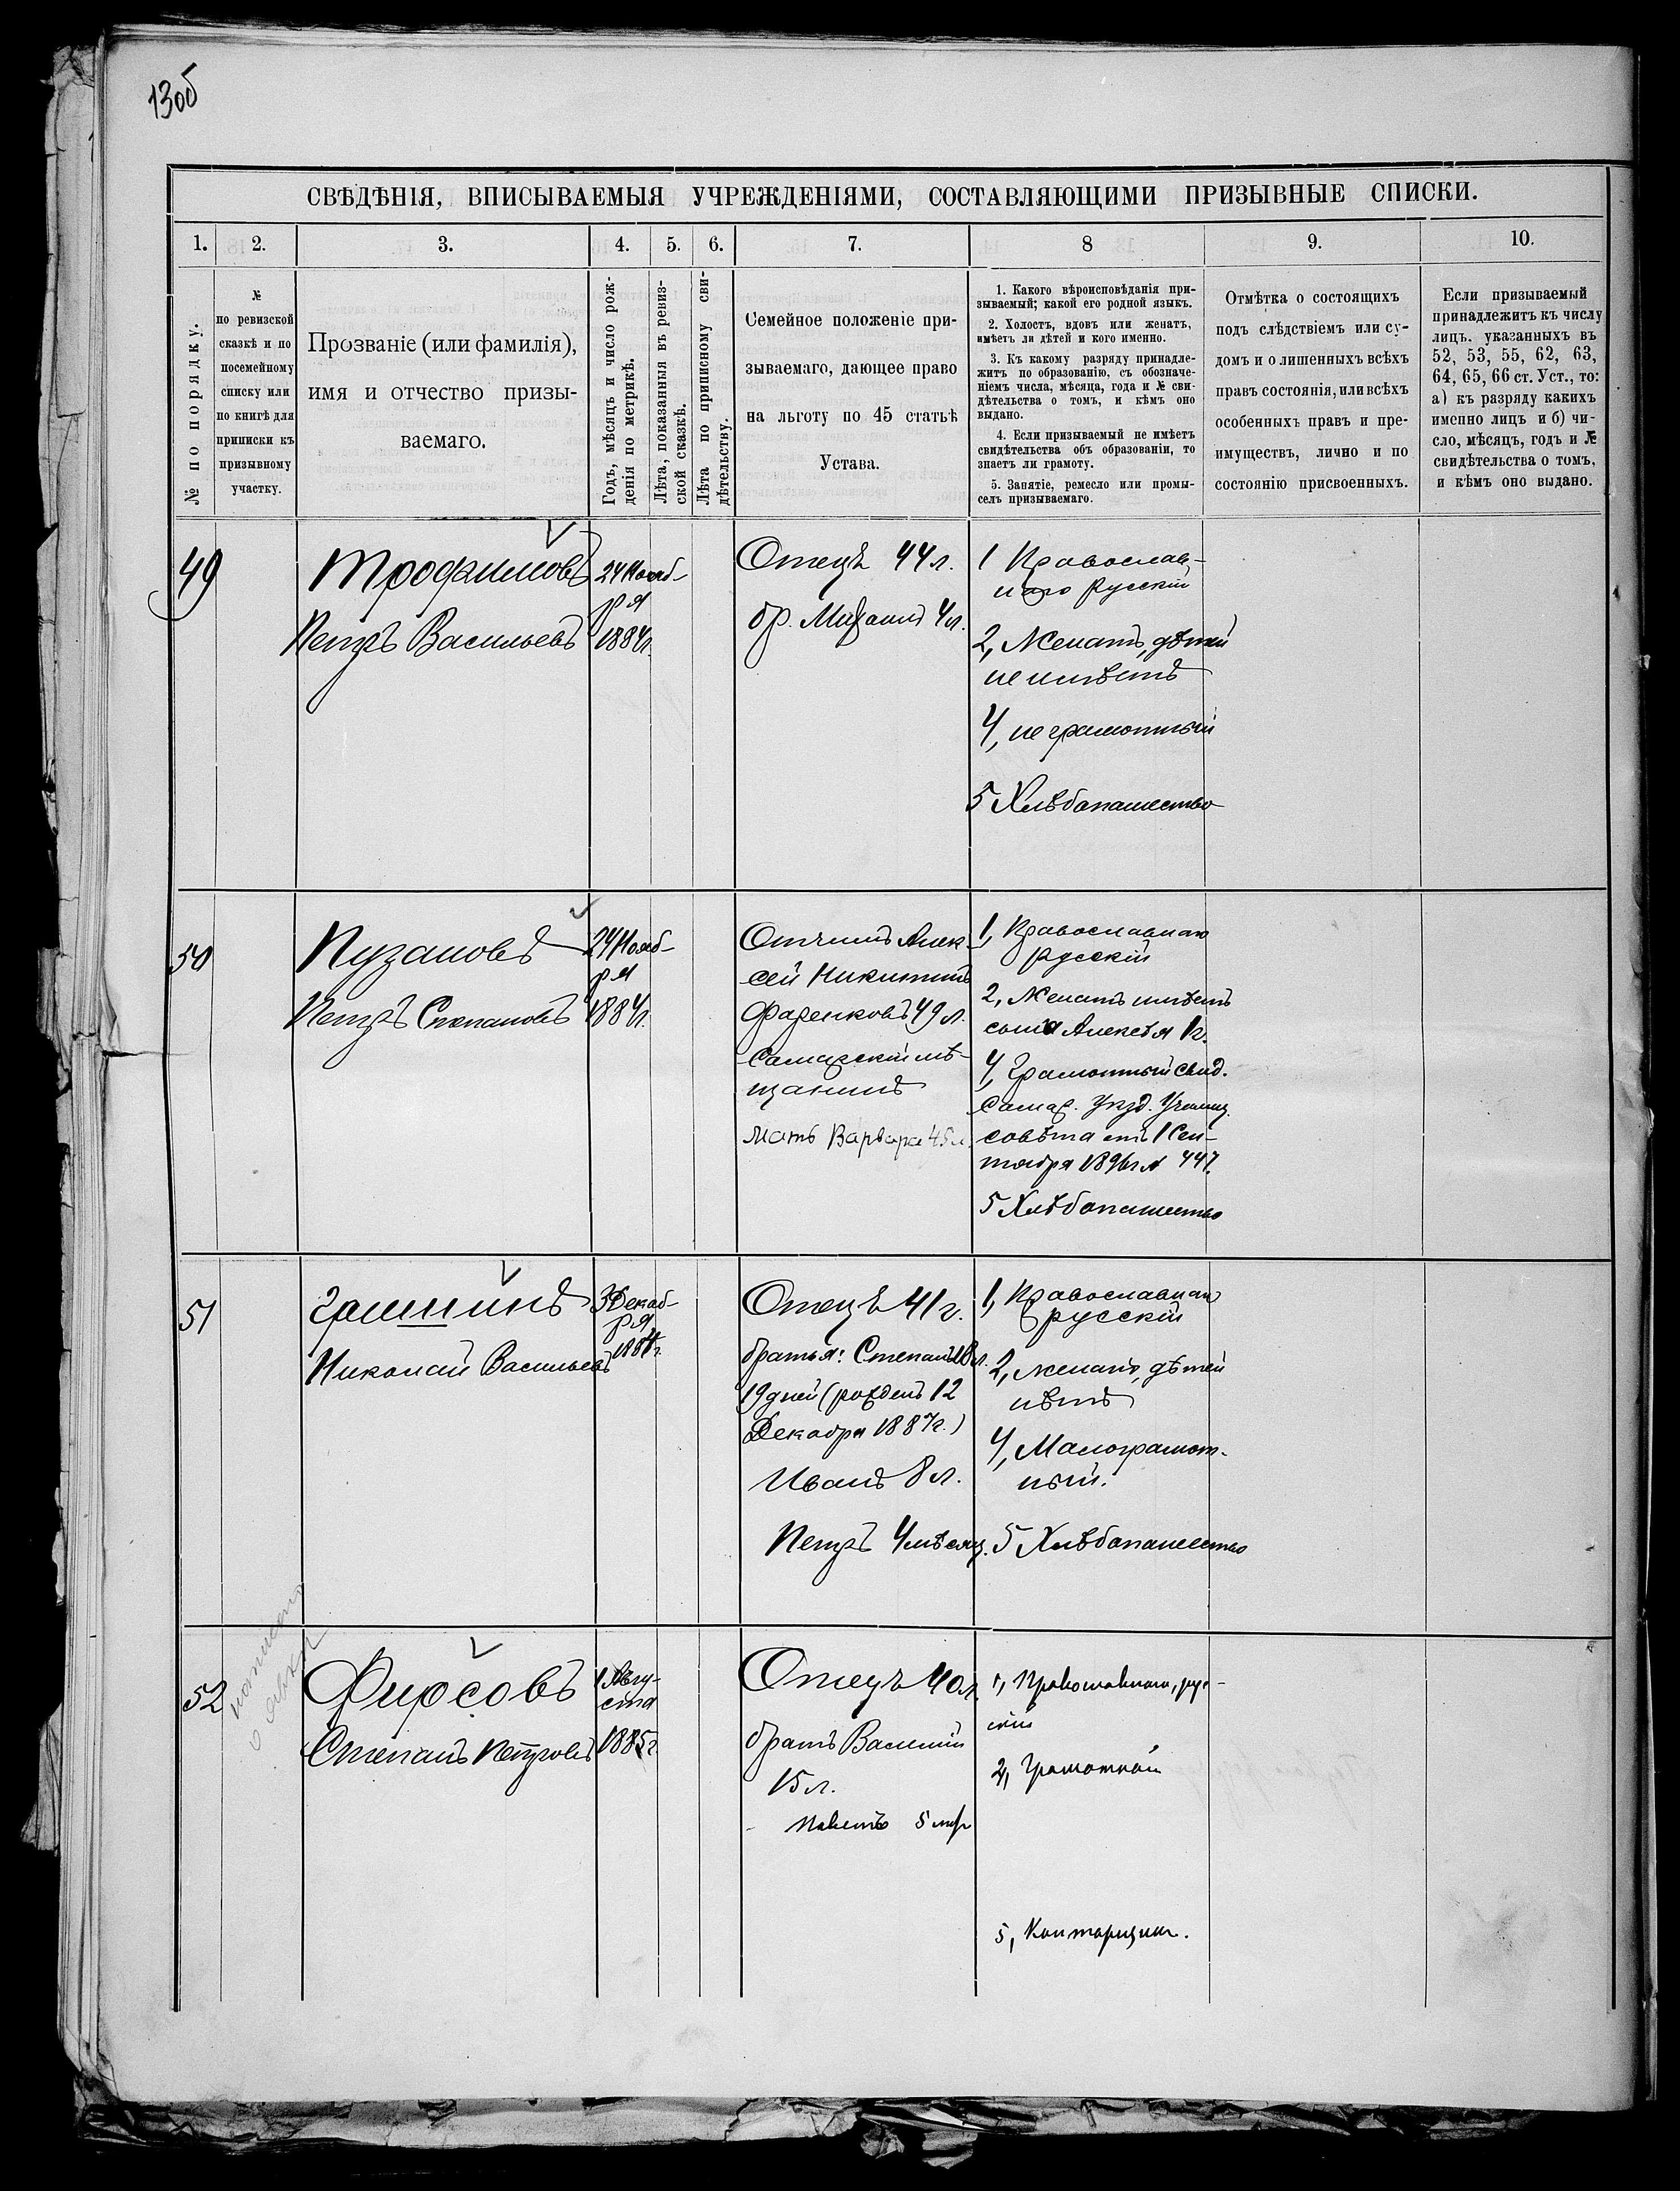 13об
СВѢДѢНІЯ, ВПИСЫВАЕМЫЯ УЧРЕЖДЕНІЯМИ, СОСТАВЛЯЮЩИМИ ПРИЗЫВНЫЕ СПИСКИ.
1. 2. 3. 4. 5. 6. 7. 8 9. 10.
№ по порядку.
№
по ревизской
сказкѣ и по
посемейному
списку или
по книгѣ для
приписки къ
призывному
участку.
Прозваніе (или фамилія),
имя и отчество призы-
ваемаго.
Годъ, мѣсяцъ и число рож-
денія по метрикѣ.
Лѣта, показанныя въ ревиз-
ской сказкѣ.
Лѣта по приписному сви-
дѣтельству.
Семейное положеніе при-
зываемаго, дающее право
на льготу по 45 статьѣ
Устава.
1. Какого вѣроисповѣданія при-
зываемый; какой его родной языкъ.
2. Холостъ, вдовъ или женатъ,
имѣетъ ли дѣтей и кого именно.
3. Къ какому разряду принадле-
житъ по образованію, съ обозначе-
ніемъ числа, мѣсяца, года и № сви-
дѣтельства о томъ, и кѣмъ оно
выдано.
4. Если призываемый не имѣетъ
свидѣтельства объ образованіи, то
знаетъ ли грамоту.
5. Занятіе, ремесло или промы-
селъ призываемаго.
Отмѣтка о состоящихъ
подъ слѣдствіемъ или су-
домъ и о лишенныхъ всѣхъ
правъ состоянія, или всѣхъ
особенныхъ правъ и пре-
имуществъ, лично и по
состоянію присвоенныхъ.
Если призываемый
принадлежитъ къ числу
лицъ, указанныхъ въ
52, 53, 55, 62, 63,
64, 65, 66 ст. Уст., то:
а) къ разряду какихъ
именно лицъ и б) чи-
сло, мѣсяцъ, годъ и №
свидѣтельства о томъ,
и кѣмъ оно выдано.
49
Трофимовъ
Петръ Васильевъ
24 Нояб-
ря
1884г.
Отецъ 44 л.
бр. Михаилъ 4 л.
1 Православ-
наго русскій
2, Женатъ, дѣтей
не имѣетъ
4, не грамотный
5 Хлѣбопашество
50
Пузановъ
Петръ Степановъ
24 Нояб-
ря
1884г.
Отчимъ Алек-
сей Никитинъ
49 л.
Самарскій мѣ-
щанинъ
мать Варвара 45 л.
1, Православнаго
русскій
2, Женатъ имѣетъ
сына Алексѣя 1г.
4, Грамотный свид.
Самар. Уѣзд. Училищ.
совѣта отъ 1 Сен-
тября 1896г № 447.
5 Хлѣбопашество
51
Гришнинъ
Николай Васильевъ
3 Декаб-
ря
1884г.
Отецъ 41 г.
братья: Степанъ 18 л.
19 дней (рожденъ 12
Декабря 1887г.)
Иванъ 8 л.
Петръ 4 мѣсяц.
1, Православнаго
русскій
2, женатъ, дѣтей
нѣтъ
4, Малограмот-
ный.
5 Хлѣбопашество
52
Фирсовъ
Степанъ Петровъ
1 Авгу-
ста
1885г.
Отецъ 40 л.
братъ Василій
15 л.
- Павелъ 5 мѣс
1, Православнаго, рус-
скій
2, Грамотной
5, Конторщик.